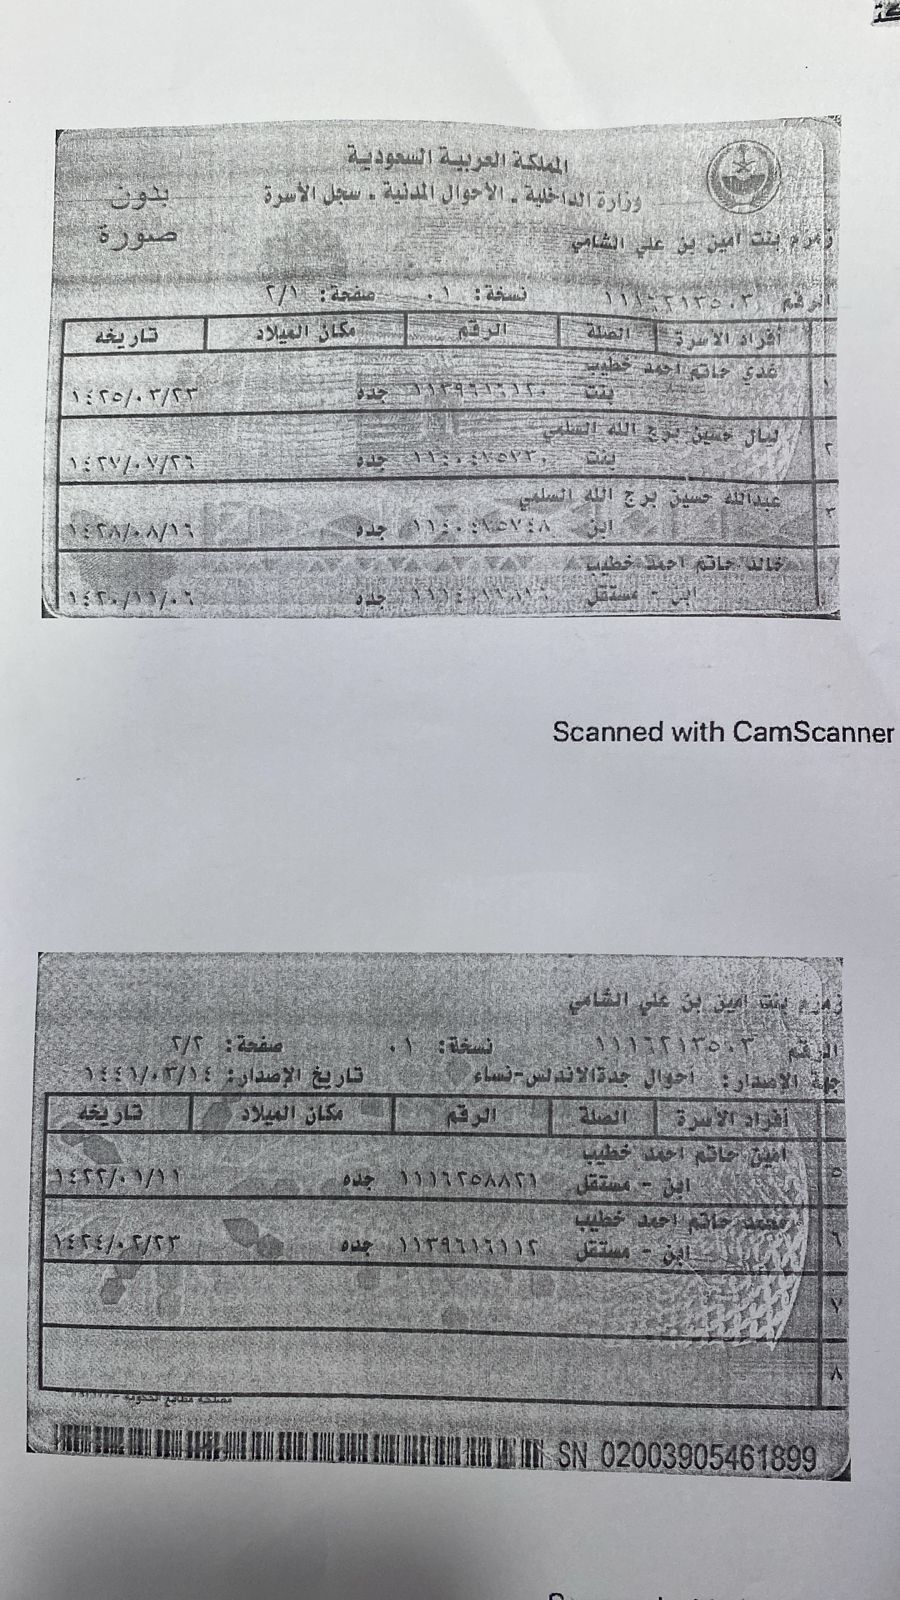 المملكة العربية السعودية
وزارة الداخلية . الأحوال المدنية . سجل الأسرة
بدون
صورة
زمزم بنت امين بن علي الشامي
الرقم ١١١٦٢١٣٥٠٣ نسخة: ٠١ صفحة: ٢/١
أفراد الأسرة الصلة الرقم مكان الميلاد تاريخه
١ عدي حاتم احمد خطيب
بنت ١١٣٩٦١٦١٢٠ جده ١٤٢٥/٠٣/٢٣
٢ ليال حسين برج الله السلمي
بنت ١١٤٠٤٧٥٧٣٠ جده ١٤٢٧/٠٧/٢٦
٣ عبدالله حسين برج الله السلمي
ابن ١١٤٠٤٧٥٧٤٨ جده ١٤٢٨/٠٨/١٦
خالد حاتم احمد خطيب
ابن - مستقل جده ١٤٢٠/١١/٠٦
Scanned with CamScanner
زمزم بنت امين بن علي الشامي
الرقم ١١١٦٢١٣٥٠٣ نسخة: ٠١ صفحة: ٢/٢
جهة الإصدار: احوال جدةالاندلس-نساء تاريخ الإصدار: ١٤٤١/٠٣/١٤
أفراد الأسرة الصلة الرقم مكان الميلاد تاريخه
٥ امين حاتم احمد خطيب
ابن - مستقل ١١١٦٢٥٨٨٢١ جده ١٤٢٢/٠١/١١
٦ محمد حاتم احمد خطيب
ابن - مستقل ١١٣٩٦١٦١١٢ جده ١٤٢٤/٠٢/٢٣
٧
٨
مصلحة مطابع الحكومة
SN 02003905461899